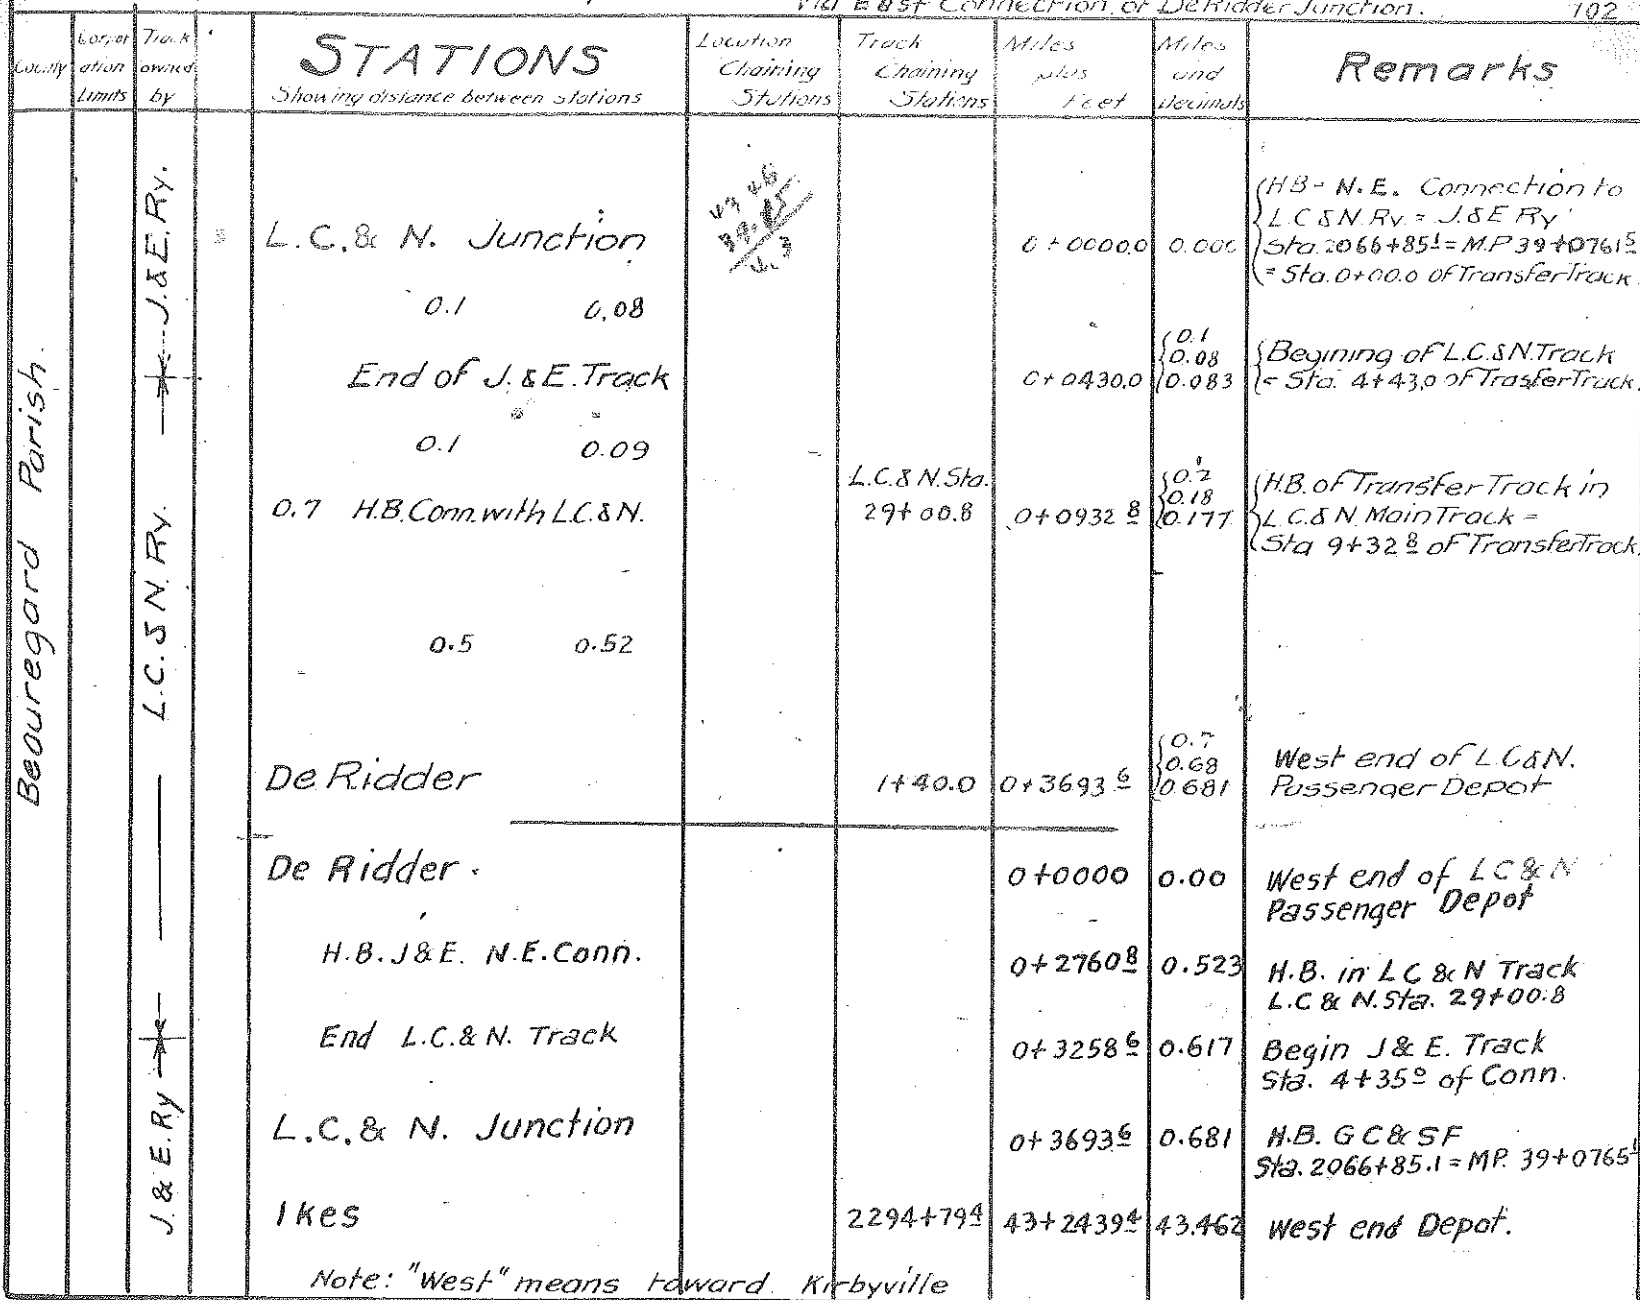 Via East Connection of DeRidder Junction. 102
County
Corporation Limits
Track owned by
STATIONS
Showing distance between stations
Location Chaining Stations
Track Chaining Stations
Miles plus Feet
Miles and decimals
Remarks
Beauregard Parish.
J.&E.Ry.
L.C.&N.Ry.
J.&E.Ry
L.C.& N. Junction 0+0000.0 0.000
H.B- N.E. Connection to
L.C&N.Ry. = J.&E Ry
Sta. 2066+85.1 = M.P 39+0761 5
= Sta. 0+00.0 of Transfer Track
0.1 0.08
End of J.&E.Track 0+0430.0 0.1
0.08
0.083
Begining of L.C.&N.Track
= Sta. 4+43.0 of Trasfer Track.
0.1 0.09
0.7 H.B.Conn.with L.C.&N. L.C.&N.Sta.
29+00.8 0+0932 8 0.2
0.18
0.177
H.B. of Transfer Track in
L.C.& N. Main Track =
Sta 9+32 8 of Transfer Track.
0.5 0.52
De Ridder 1+40.0 0+3693 6 0.7
0.68
0.681
West end of L.C&N.
Passenger Depot
De Ridder. 0+0000 0.00 West end of LC & N
Passenger Depot
H.B. J&E. N.E. Conn. 0+2760 8 0.523 H.B. in LC & N Track
L.C & N. Sta. 29+00.8
End L.C.& N. Track 0+3258 6 0.617 Begin J & E. Track
Sta. 4+35 0 of Conn.
L.C.& N. Junction 0+3693 6 0.681 H.B. GC & SF
Sta. 2066+85.1 = MP. 39+0765 1
Ikes 2294+79 4 43+2439 4 43.462 West end Depot.
Note: "West" means toward Kirbyville